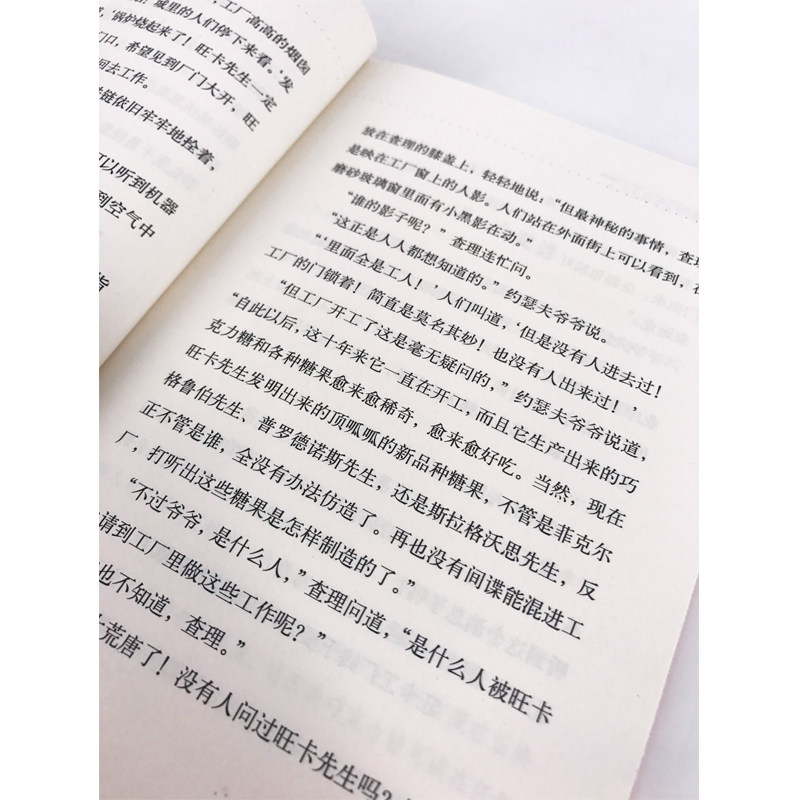 ，工厂高高的烟囱
！城里的人们停下来看。‘发
，‘锅炉烧起来了！旺卡先生一定
门口，希望见到厂门大开，旺
回去工作。
链依旧牢牢地拴着，
可以听到机器
到空气中
放在查理的膝盖上，轻轻地说：“但最神秘的事情，查理
是映在工厂窗上的人影。人们站在外面街上可以看到，在
磨砂玻璃窗里面有小黑影在动。”
“谁的影子呢？”查理连忙问。
“这正是人人都想知道的。”约瑟夫爷爷说。
“‘里面全是工人！’人们叫道，‘但是没有人进去过！
工厂的门锁着！简直是莫名其妙！也没有人出来过！’
“但工厂开工了这是毫无疑问的，”约瑟夫爷爷说道，
“自此以后，这十年来它一直在开工，而且它生产出来的巧
克力糖和各种糖果愈来愈稀奇，愈来愈好吃。当然，现在
旺卡先生发明出来的顶呱呱的新品种糖果，不管是菲克尔
格鲁伯先生、普罗德诺斯先生，还是斯拉格沃思先生，反
正不管是谁，全没有办法仿造了。再也没有间谍能混进工
厂，打听出这些糖果是怎样制造的了。”
“不过爷爷，是什么人，”查理问道，“是什么人被旺卡
请到工厂里做这些工作呢？”
也不知道，查理。”
荒唐了！没有人问过旺卡先生吗？